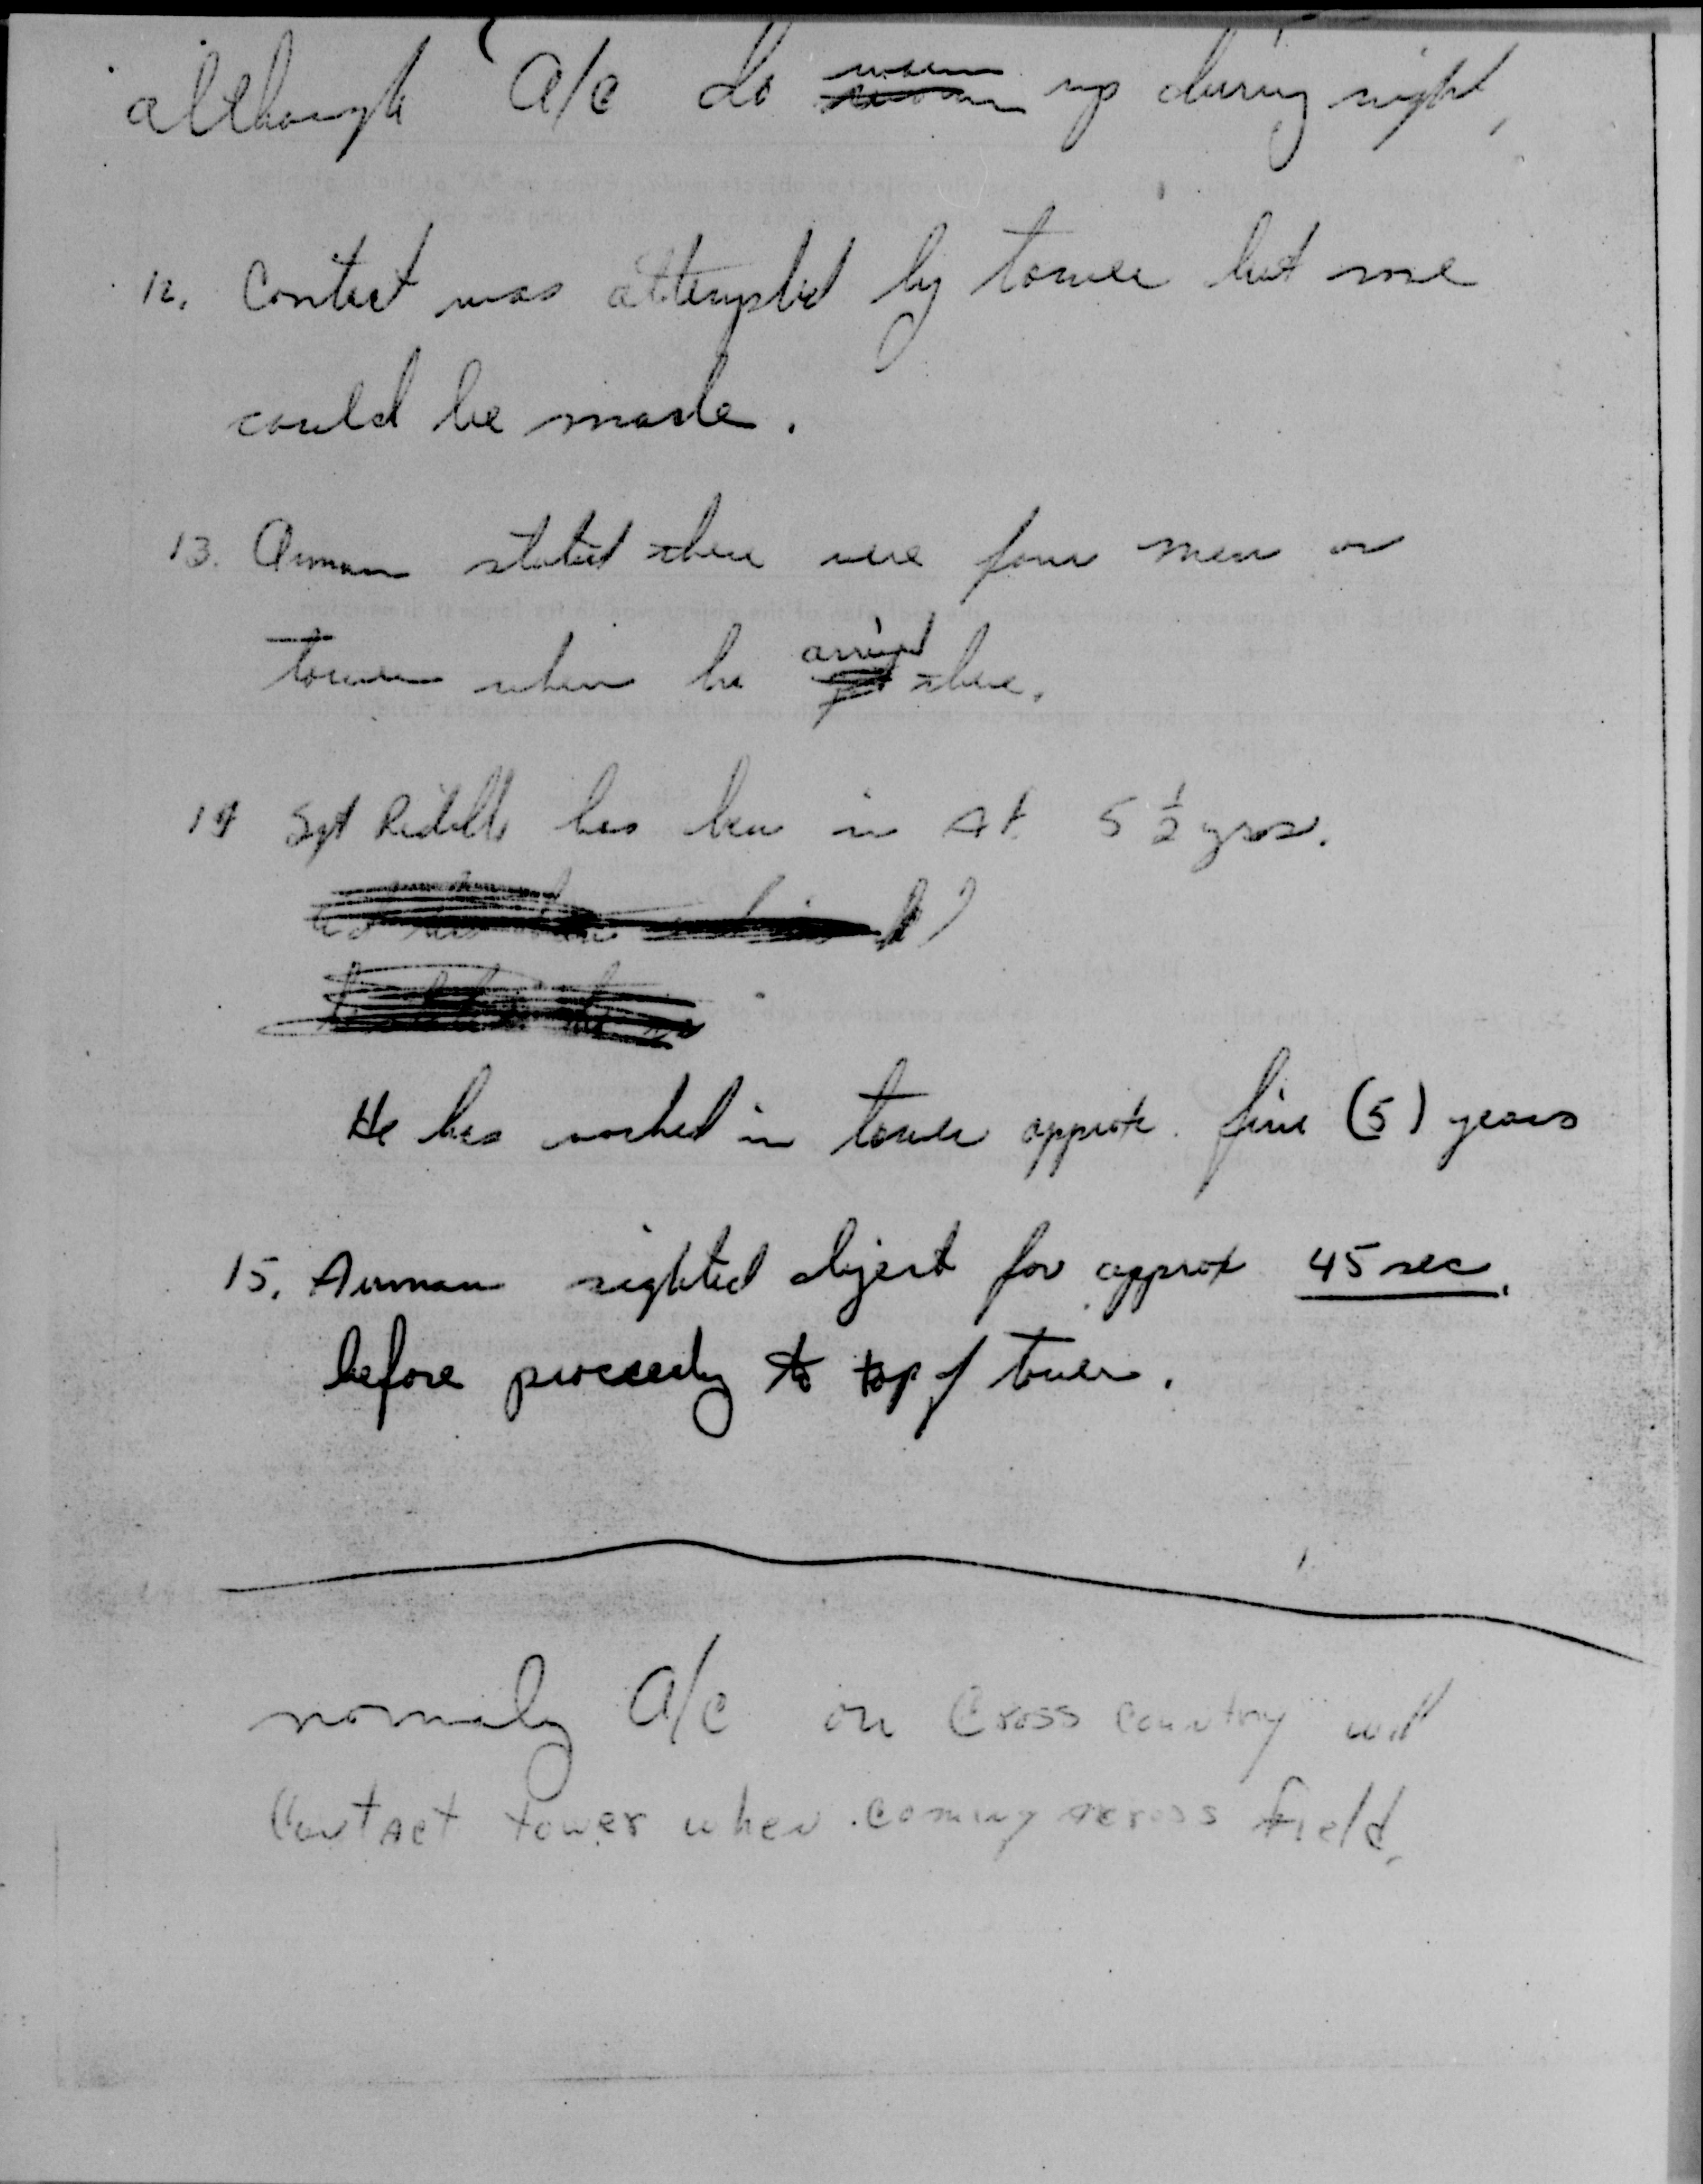 although A/C do warm up during night,
12. Contact was attempted by tower but none
could be made.
13. Airman stated there were four men on
tower when he arrived there.
14 Sgt has been in AF 5 1/2 yrs.
He has worked in tower approx. five (5) years
15. Airman sighted object for approx 45 sec.
before proceeding to top of tower.
normaly A/C on Cross Country will
Contact tower when coming across field.